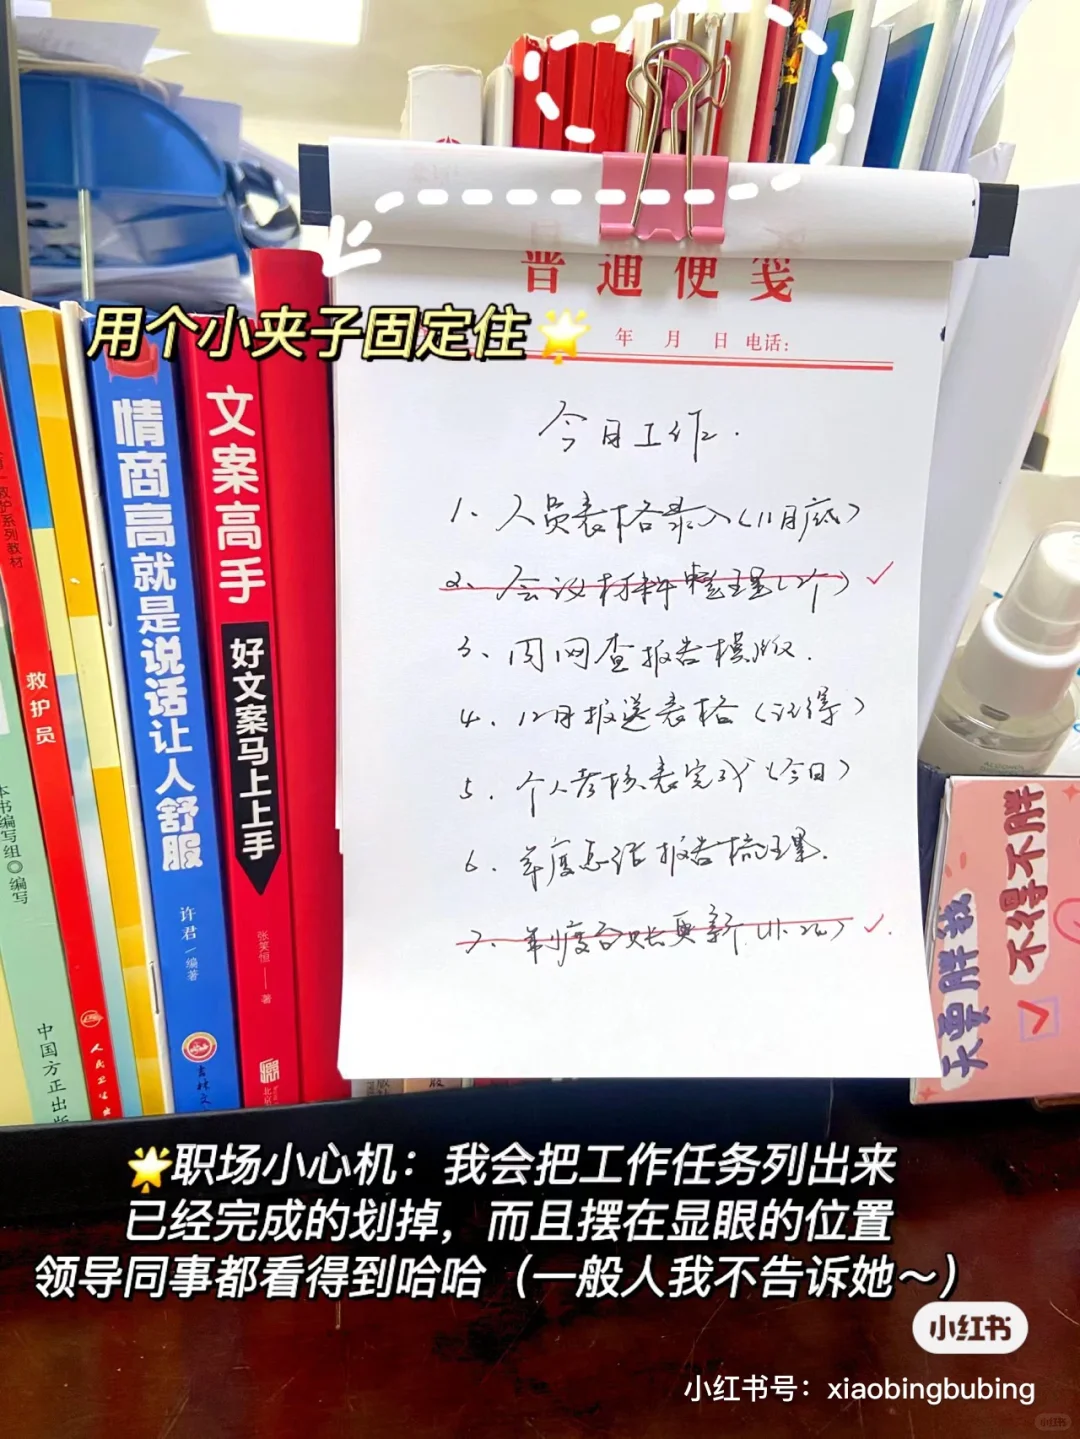 普通便笺
年 月 日 电话:
用个小夹子固定住
今日工作.
1、人员表格录入(11月底)
2、会议材料整理(2个) ✓
3、内网查报告模版.
4、12月报送表格(记得)
5.个人考核表完成(今日)
6.年度总结报告梳理.
7.制度台账更新 ✓.
情商高就是说话让人舒服
许君一 编著
文案高手
好文案马上上手
张笑恒 著
救护员
救护系列教材
本书编写组◎编写
中国方正出版
人民卫生出
吉林文
北京
天要胖我
不得不胖
🌟职场小心机：我会把工作任务列出来
已经完成的划掉，而且摆在显眼的位置
领导同事都看得到哈哈（一般人我不告诉她～）
小红书
小红书号：xiaobingbubing
小红书